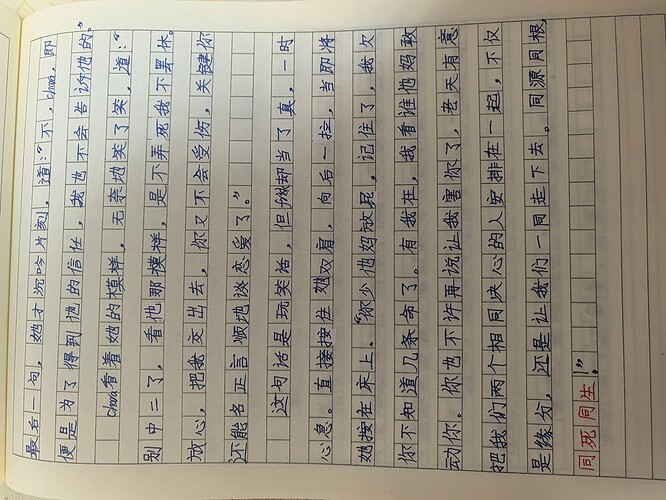 最后一句，她才沉吟片刻，道："不，chara，即
便是为了得到他的信任，我也不会告诉他的。"
chara看着她的模样，无奈地笑了笑，道："
别中二了，看他那模样，是不弄死我不罢休。
放心，把我交出去，你又不会受伤，关键你
还能名正言顺地谈恋爱了。"
这句话是玩笑话，但frisk却当了真，一时
心急。直接按住她双肩，向后一拉，当即将
她按在床上。"你少他妈放屁，记住了，我欠
你不知道几条命了。有我在，我看谁他妈敢
动你。你也不许再说让我害你了，老天有意
把我们两个相同决心的人安排在一起，不仅
是缘分，还是让我们一同走下去。同源同根，
同死同生！"